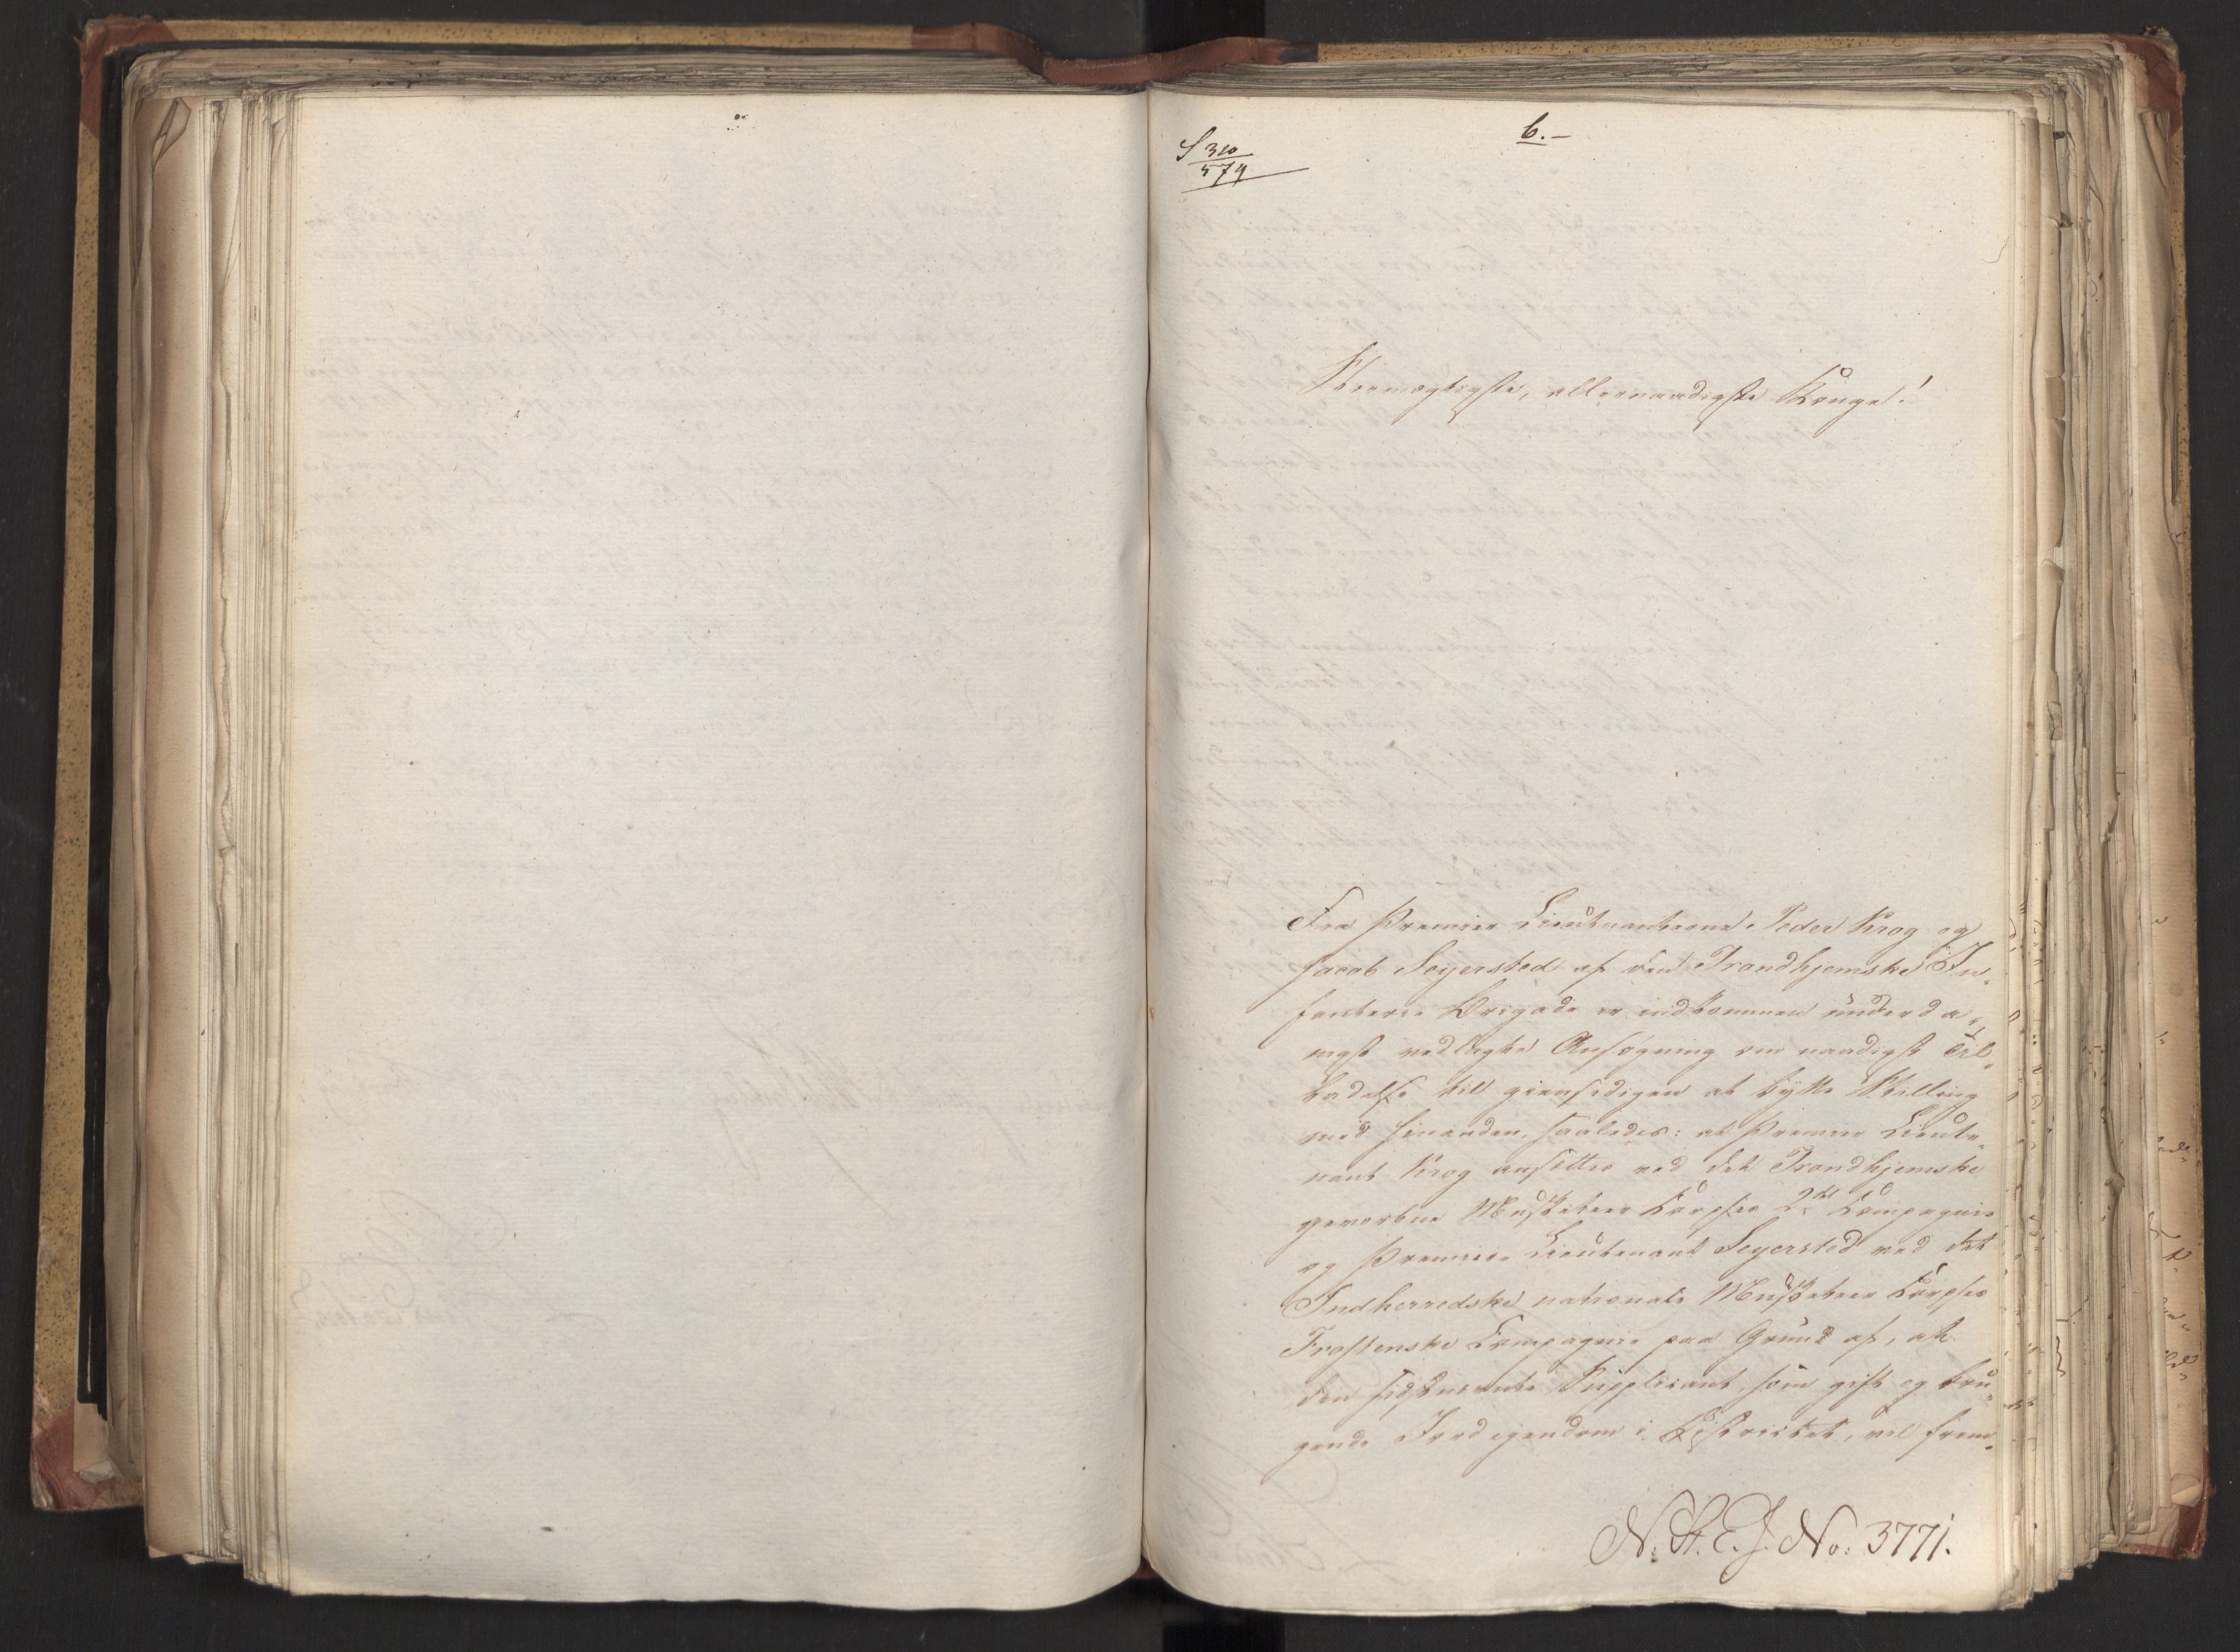 6.–
S 310
574
Stormægtigste, allernaadigste Konge!
Fra Premier Lieutnanterne Peder Krog og
Jacob Seyersted af den Trondhjemske In-
fanterie Brigade er indkommen underda-
nigst vedlagte Ansøgning om naadigst Til-
ladelse till giensidigen at bytte Stilling
med hinanden, saaledes: at Premier Lieute-
nant Krog ansættes ved det Trondhjemske
gevorbne Musketeer Corpses 2det Compagnie
og Premier Lieutenant Seyersted ved det
Indherredske nationale Musketeer Corpses
Frostenske Compagnie paa Grund af, at
den sidstnævnte Supplicant, som gift og bru-
gende Jordegendom i Districtet, vil frem-
N. St. E. J. No: 3771.